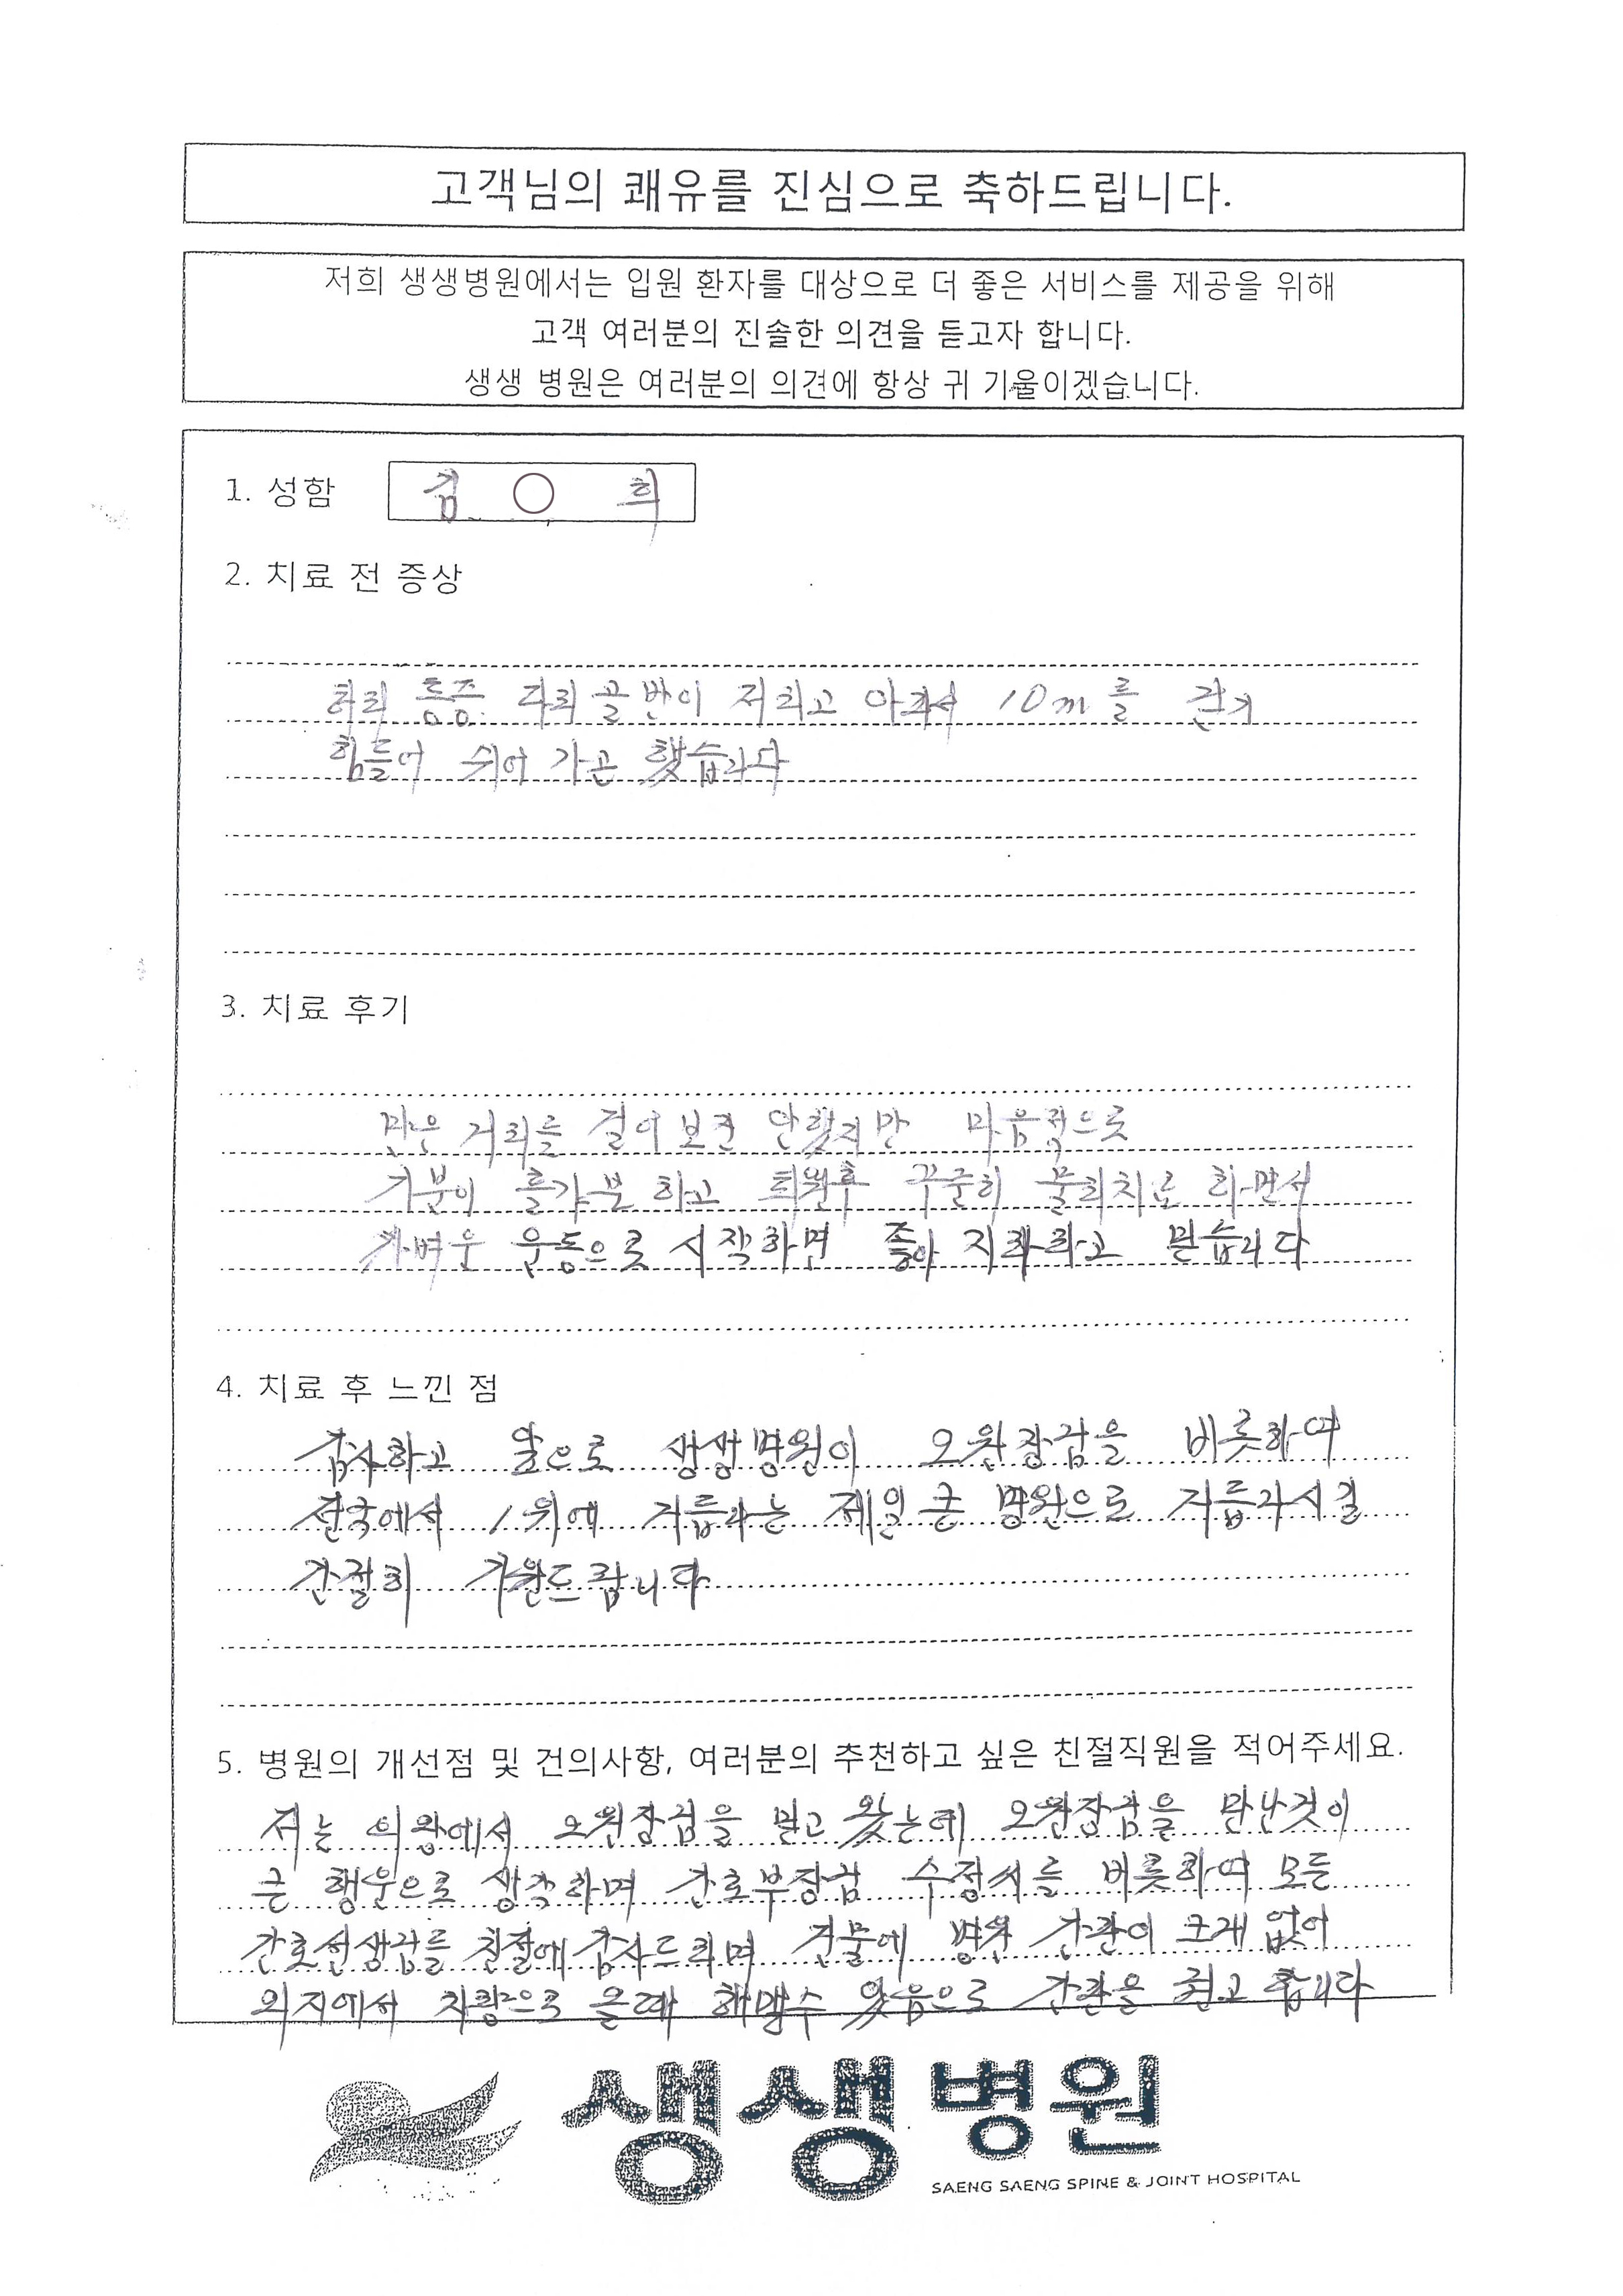 고객님의 쾌유를 진심으로 축하드립니다.
저희 생생병원에서는 입원 환자를 대상으로 더 좋은 서비스를 제공을 위해
고객 여러분의 진솔한 의견을 듣고자 합니다.
생생 병원은 여러분의 의견에 항상 귀 기울이겠습니다.
1. 성함 김 ○ 희
2. 치료 전 증상
허리 통증 다리 골반이 저리고 아파서 10m를 걷기
힘들어 쉬어 가곤 했습니다
3. 치료 후기
많은 거리를 걸어 보진 안했지만 마음적으로
기분이 홀가분 하고 퇴원후 꾸준히 물리치료 하면서
가벼운 운동으로 시작하면 좋아 지리라고 믿습니다
4. 치료 후 느낀 점
감사하고 앞으로 생생병원이 오원장님을 비롯하여
전국에서 1위에 거듭나는 제일 큰 병원으로 거듭나시길
간절히 기원드립니다
5. 병원의 개선점 및 건의사항, 여러분의 추천하고 싶은 친절직원을 적어주세요.
저는 의왕에서 오원장님을 믿고 왔는데 오원장님을 만난것이
큰 행운으로 생각하며 간호부장님 수정씨를 비롯하여 모든
간호선생님들 친절에 감사드리며 건물에 병원 간판이 크게 없어
외지에서 차량으로 올때 해맬수 있음으로 간판을 권고 합니다
생생병원
SAENG SAENG SPINE & JOINT HOSPITAL